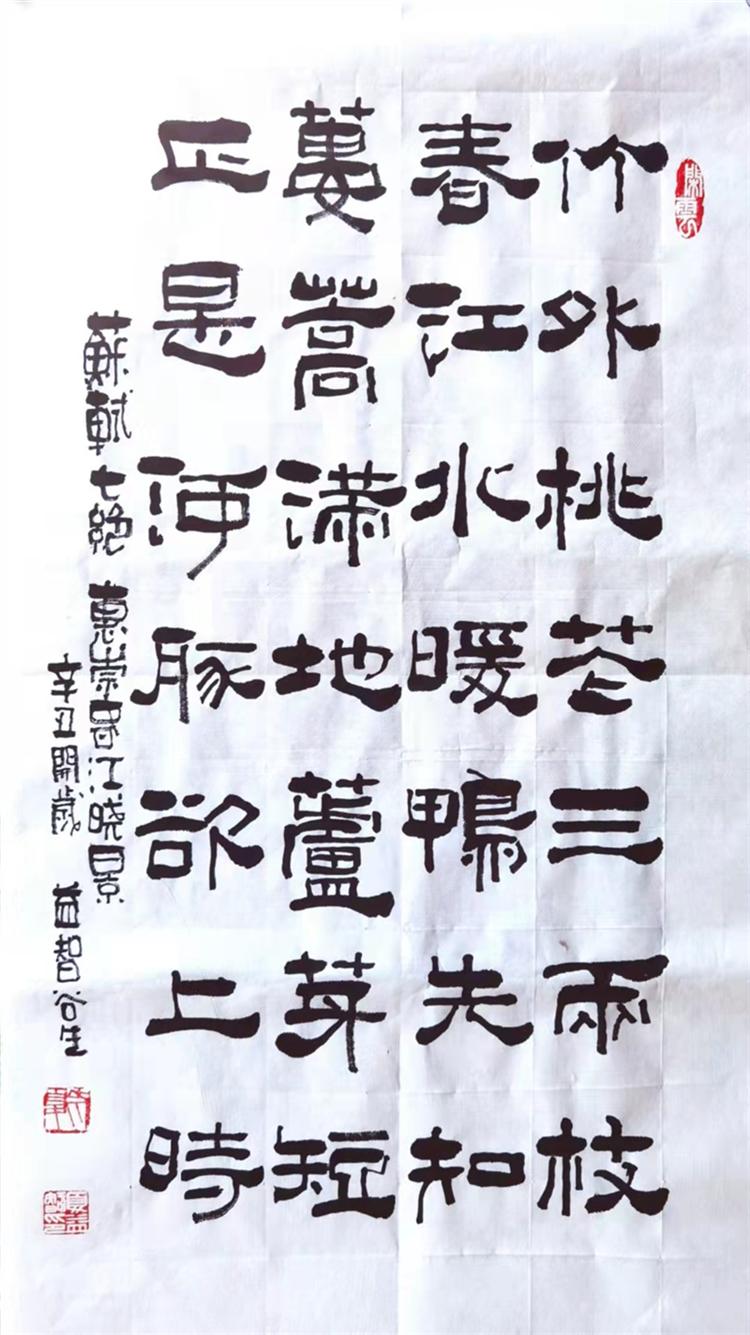 閑雲
竹外桃花三兩枝
春江水暖鴨先知
蔞蒿满地蘆芽短
正是河豚欲上時
蘇軾七絕 惠崇春江晓景
辛丑開歲 益智谷生